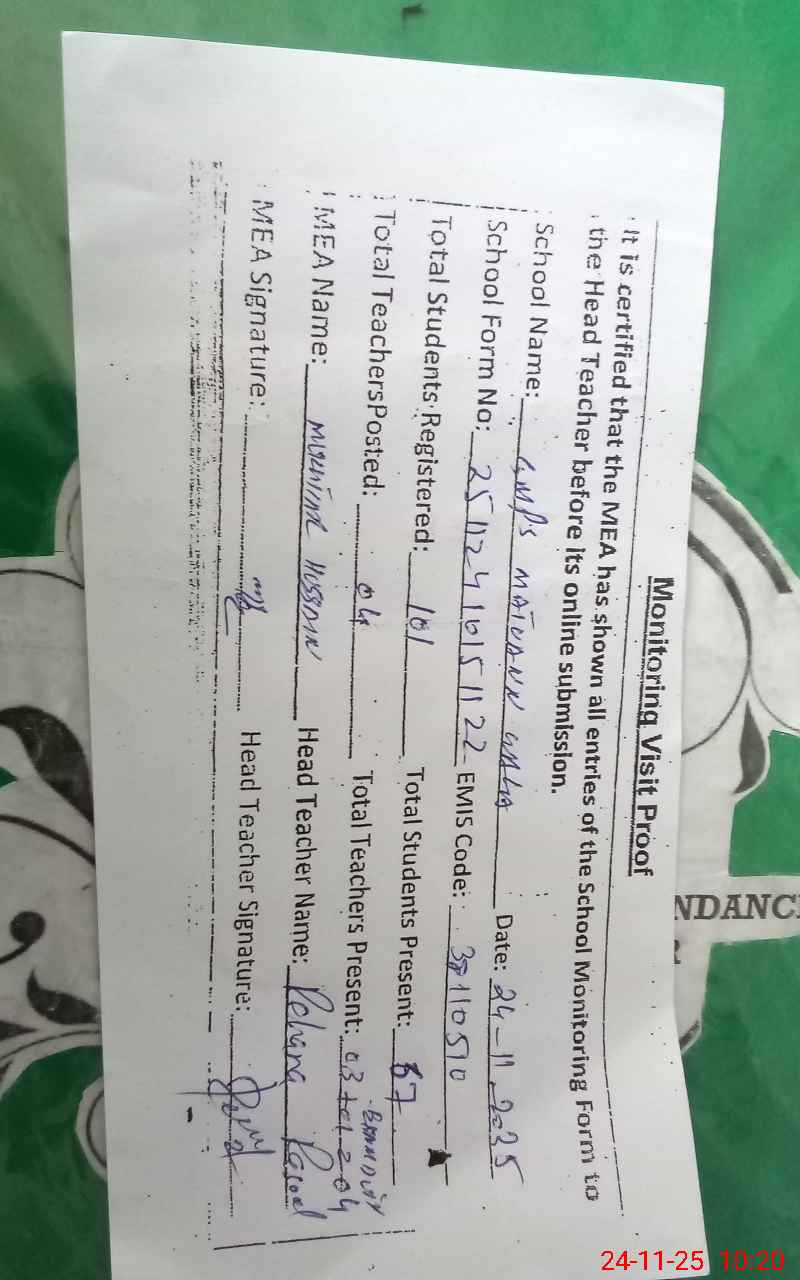 Monitoring Visit Proof
It is certified that the MEA has shown all entries of the School Monitoring Form to
the Head Teacher before its online submission.
School Name: GMPS MAIUANN WALA Date: 24-11-2035
School Form No: 25112416151122 EMIS Code: 38110510
Total Students Registered: 101 Total Students Present: 87
Total TeachersPosted: 04 Total Teachers Present: 03+01=04
MEA Name: HUSSAIN Head Teacher Name: Rehana
MEA Signature: Head Teacher Signature:
NDANC
24-11-25 10:20